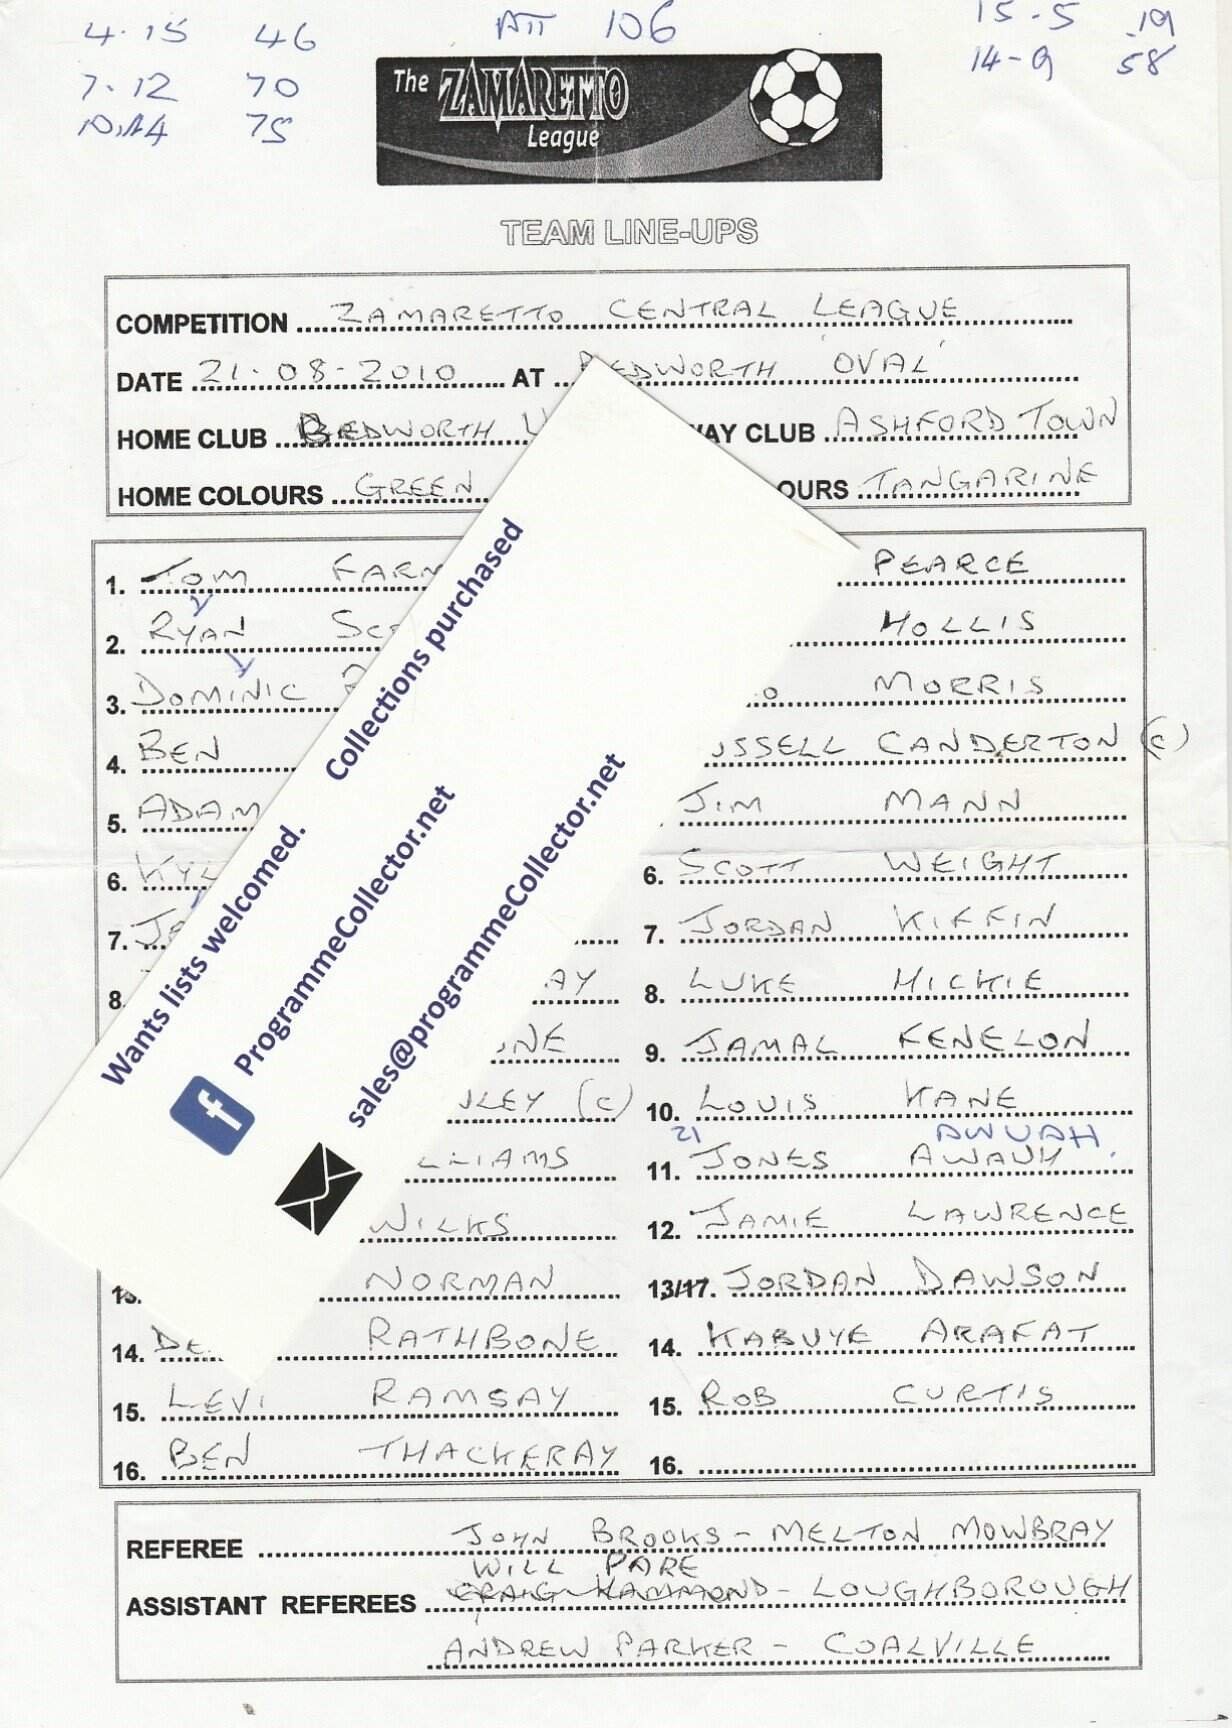 4.15 46
7.12 70
10.14 75
ATT 106
15-5 19
14-9 58
The ZAMARETTO League
TEAM LINE-UPS
COMPETITION ZAMARETTO CENTRAL LEAGUE
DATE 21.08-2010 AT BEDWORTH 'OVAL'
HOME CLUB BEDWORTH U
WAY CLUB ASHFORD TOWN
HOME COLOURS GREEN
OURS TANGARINE
1. TOM FARM
2. RYAN SC
3. DOMINIC
4. BEN
5. ADAM
6. KYL
7. JA
8. AY
NE
LEY (C)
LLIAMS
WILKS
13. NORMAN
14. DE RATHBONE
15. LEVI RAMSAY
16. BEN THACKERAY
PEARCE
HOLLIS
O MORRIS
USSELL CANDERTON (C)
JIM MANN
6. SCOTT WEIGHT
7. JORDAN KIFFIN
8. LUKE HICKIE
9. JAMAL FENELON
10. LOUIS KANE
21 AWUAH.
11. JONES AWAUH
12. JAMIE LAWRENCE
13/17. JORDAN DAWSON
14. KABUYE ARAFAT
15. ROB CURTIS
16.
Wants lists welcomed. Collections purchased
ProgrammeCollector.net
sales@programmeCollector.net
REFEREE JOHN BROOKS - MELTON MOWBRAY
WILL PARE
ASSISTANT REFEREES CRAIG HAMMOND - LOUGHBOROUGH
ANDREW PARKER - COALVILLE